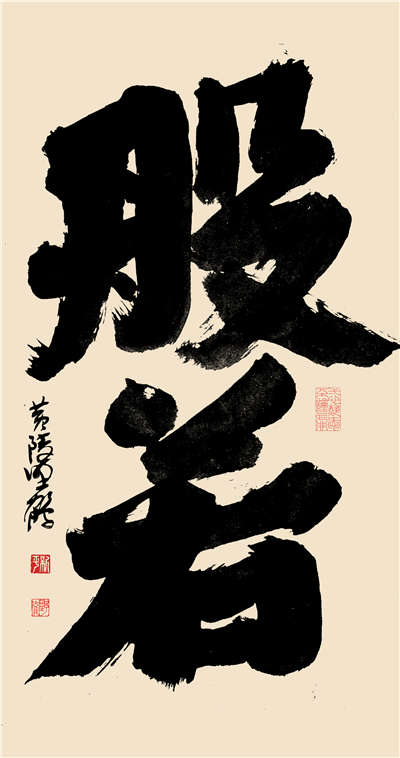 般若
黄陵野鹤